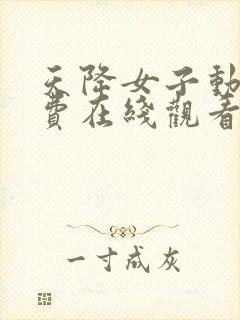 天降女子動
費在綫觀看
一寸成灰